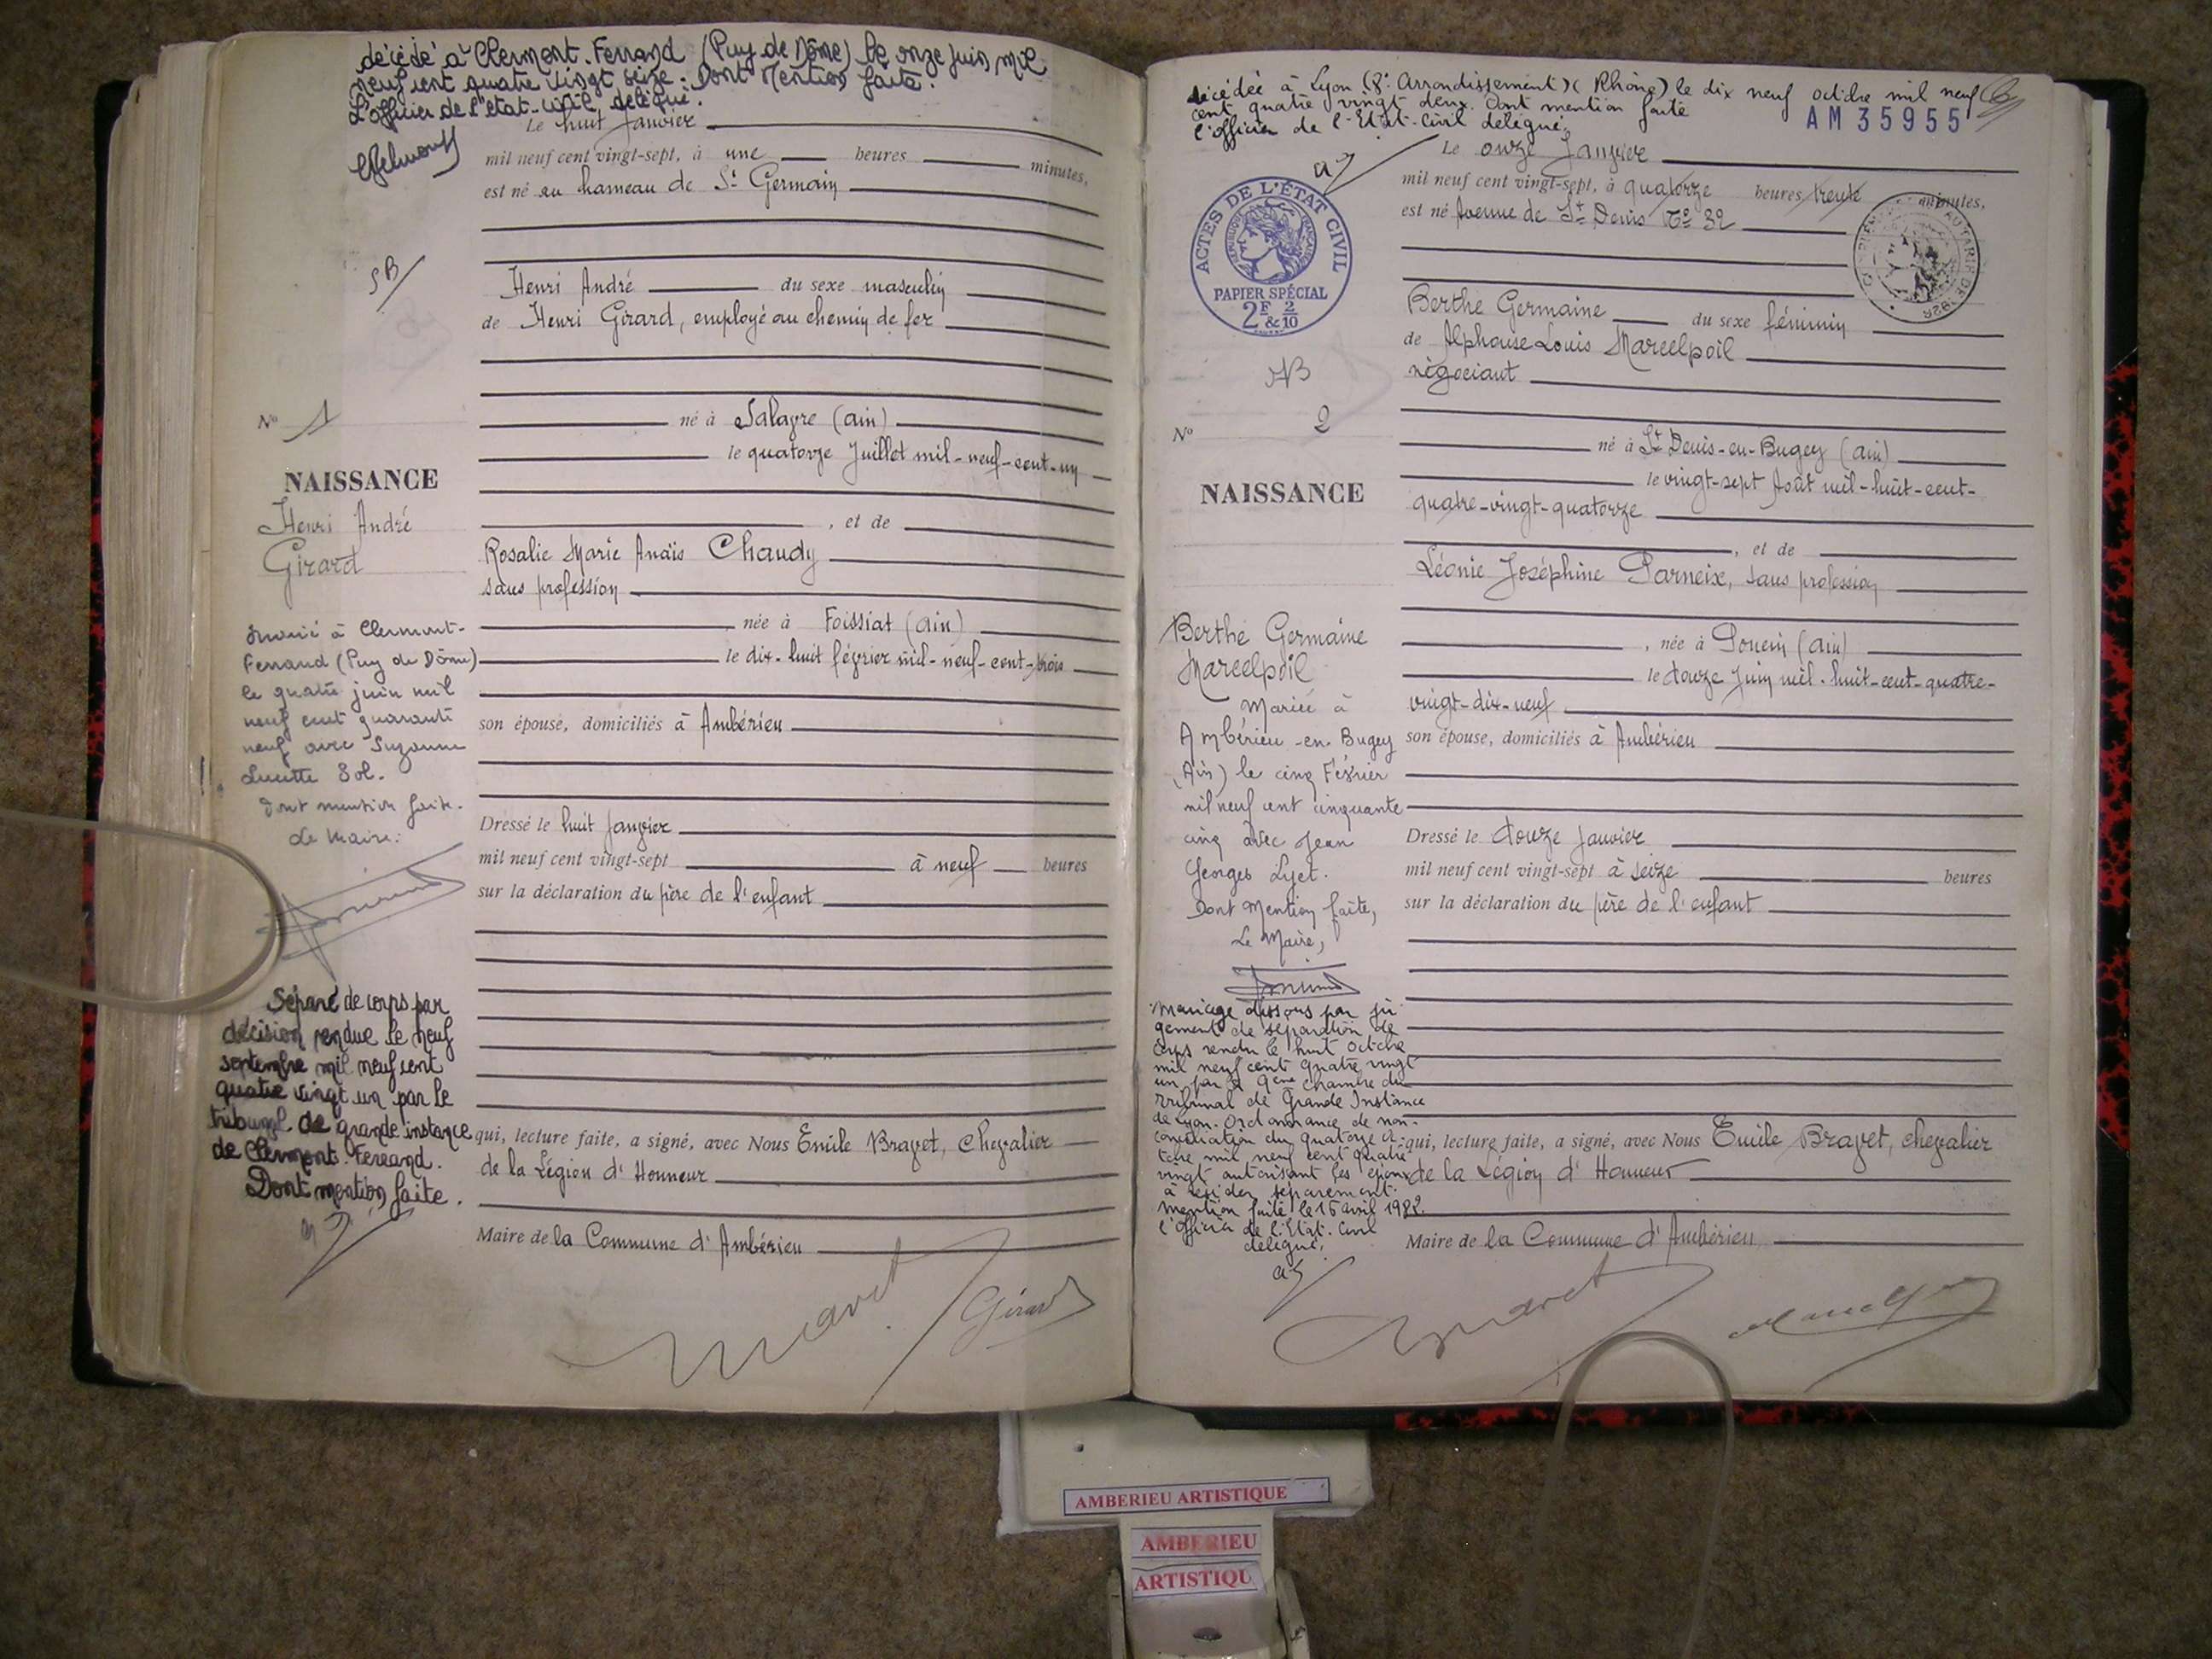 décédé à Clermont-Ferrand (Puy de Dôme) le onze juin mil
neuf cent quatre vingt seize. Dont Mention faite.
L'officier de l'état-civil délégué.
Le huit Janvier
mil neuf cent vingt-sept, à une heures minutes,
est né au hameau de St Germain
SB
Henri André du sexe masculin
de Henri Girard, employé au chemin de fer
né à Salavre (Ain)
le quatorze Juillet mil-neuf-cent-un
, et de
Rosalie Marie Anaïs Chaudy
sans profession
née à Foissiat (Ain)
le dix-huit février mil-neuf-cent-trois
son épouse, domiciliés à Ambérieu
Dressé le huit Janvier
mil neuf cent vingt-sept à neuf heures
sur la déclaration du père de l'enfant
qui, lecture faite, a signé, avec Nous Emile Bravet, Chevalier
de la Légion d'Honneur
Maire de la Commune d'Ambérieu
Bravet
Girard
No 1
NAISSANCE
Henri André
Girard
Marié à Clermont-
Ferrand (Puy de Dôme)
le quatre juin mil
neuf cent quarante
neuf avec Suzanne
Lucette Sol.
Dont mention faite.
Le Maire:
Séparé de corps par
décision rendue le neuf
septembre mil neuf cent
quatre vingt un par le
tribunal de grande instance
de Clermont-Ferrand.
Dont mention faite.
décédée à Lyon (8e Arrondissement) (Rhône) le dix neuf octobre mil neuf
cent quatre vingt deux. Dont mention faite
l'officier de l'Etat-Civil délégué,
AM 35955
Le onze Janvier
mil neuf cent vingt-sept, à quatorze heures trente minutes,
est né Avenue de St Denis No 32
ACTES DE L'ÉTAT CIVIL
RÉPUBLIQUE FRANÇAISE
PAPIER SPÉCIAL
2F & 2/10
Berthe Germaine du sexe féminin
de Alphonse Louis Marcelpoil
négociant
né à St Denis-en-Bugey (Ain)
le vingt-sept Août mil-huit-cent-
quatre-vingt-quatorze
, et de
Léonie Joséphine Parneix, sans profession
, née à Poncin (Ain)
le douze Juin mil-huit-cent-quatre-
vingt-dix-neuf
son épouse, domiciliés à Ambérieu
Dressé le douze Janvier
mil neuf cent vingt-sept à seize heures
sur la déclaration du père de l'enfant
qui, lecture faite, a signé, avec Nous Emile Bravet, chevalier
de la Légion d'Honneur
Maire de la Commune d'Ambérieu
Bravet
No 2
NAISSANCE
Berthe Germaine
Marcelpoil
Mariée à
Ambérieu-en-Bugey
(Ain) le cinq Février
mil neuf cent cinquante
cinq avec Jean
Georges Lyet.
Dont Mention faite,
Le Maire,
Mariage dissous par ju-
gement de séparation de
corps rendu le huit Octobre
mil neuf cent quatre vingt
un par la 9ème chambre du
Tribunal de Grande Instance
de Lyon. Ordonnance de non-
conciliation du quatorze oc-
tobre mil neuf cent quatre
vingt autorisant les époux
à résider séparément.
Mention faite le 15 avril 1982.
l'officier de l'Etat-Civil
délégué,
AMBERIEU ARTISTIQUE
AMBERIEU
ARTISTIQU